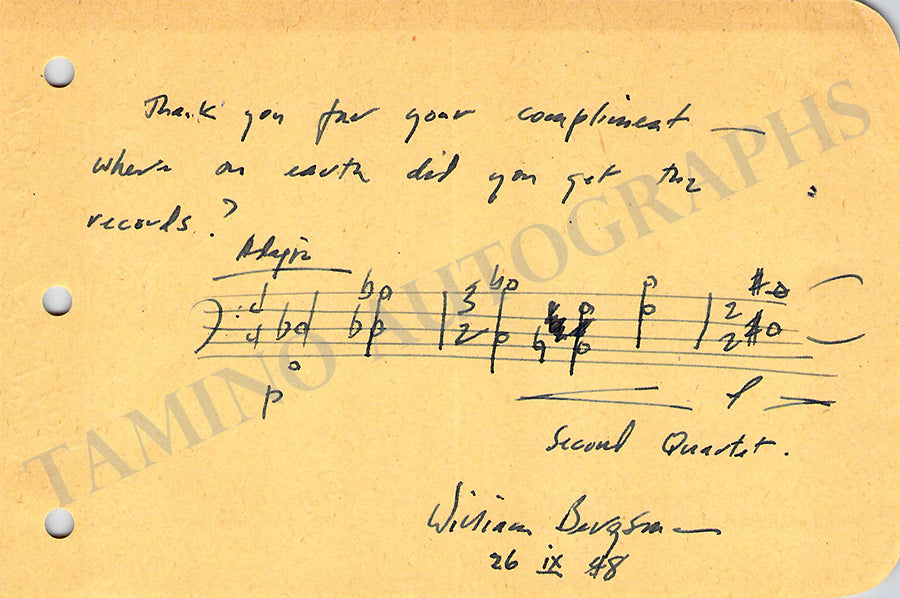 Thank you for your compliment —
where on earth did you get the
records?
Adagio
p
f
Second Quartet.
William Bergsma
26 ix 48
TAMINO AUTOGRAPHS